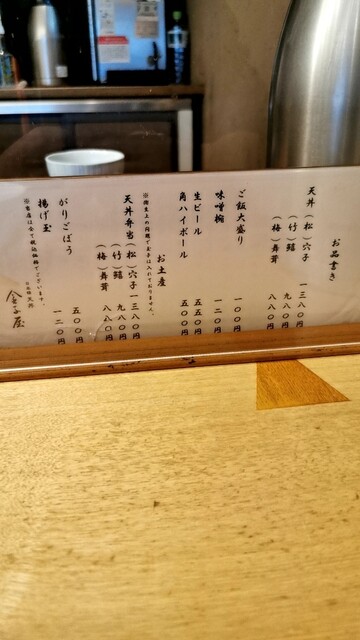 お品書き
天丼（松）穴子 一三八〇円
（竹）鱚 九八〇円
（梅）舞茸 八八〇円
ご飯大盛り 一〇〇円
味噌椀 一二〇円
生ビール 五五〇円
角ハイボール 五〇〇円
お土産
※衛生上の問題で お手は入れておりません。
天丼弁当（松）穴子 一三八〇円
（竹）鱚 九八〇円
（梅）舞茸 八八〇円
がりごぼう 五〇〇円
揚げ玉 一二〇円
※当店は全て税込価格でございます。
金子屋